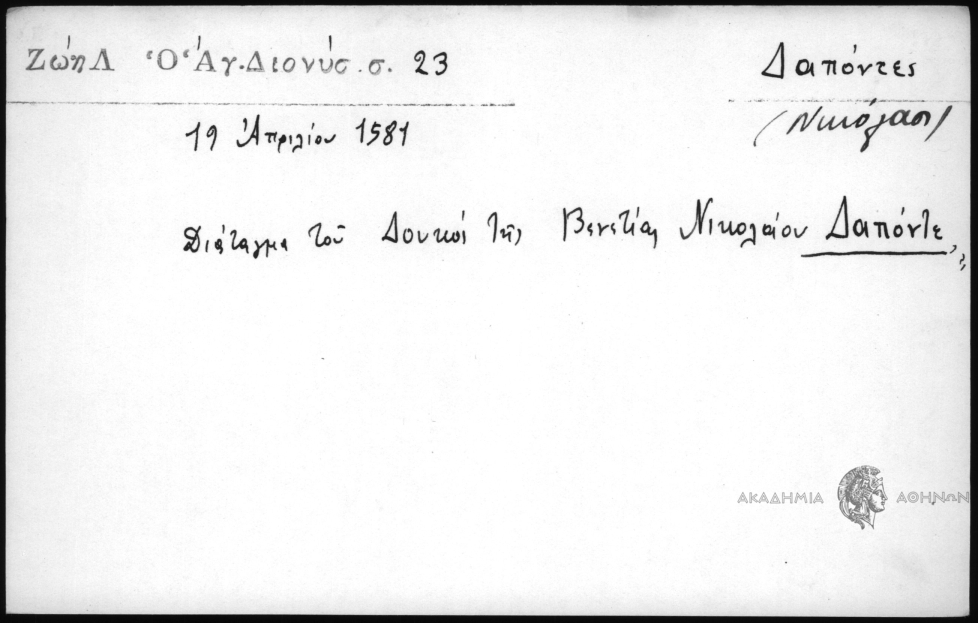 Ζώη Λ Ὁ Ἁγ. Διονύσ. σ. 23
Δαπόντες
(Νικόλαος)
19 Ἀπριλίου 1581
Διάταγμα τοῦ Δουκὸς τῆς Βενετίας Νικολάου Δαπόντε,,
ΑΚΑΔΗΜΙΑ ΑΘΗΝΩΝ